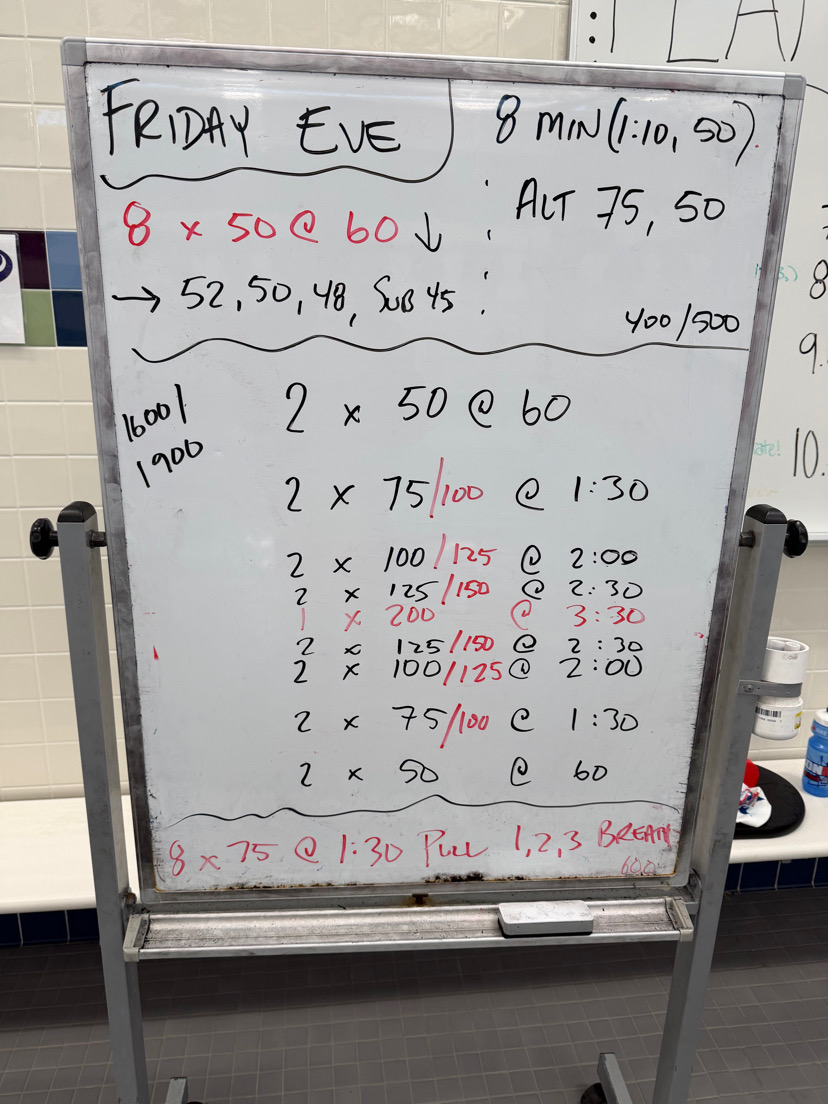 FRIDAY EVE
8 MIN (1:10, 50)
ALT 75, 50
8 x 50 @ 60 ↓
→ 52, 50, 48, SUB 45
400/500
1600/
1900
2 x 50 @ 60
2 x 75/100 @ 1:30
2 x 100/125 @ 2:00
2 x 125/150 @ 2:30
1 x 200 @ 3:30
2 x 125/150 @ 2:30
2 x 100/125 @ 2:00
2 x 75/100 @ 1:30
2 x 50 @ 60
8 x 75 @ 1:30 PULL 1,2,3 BREATH
600
8
9.
10.